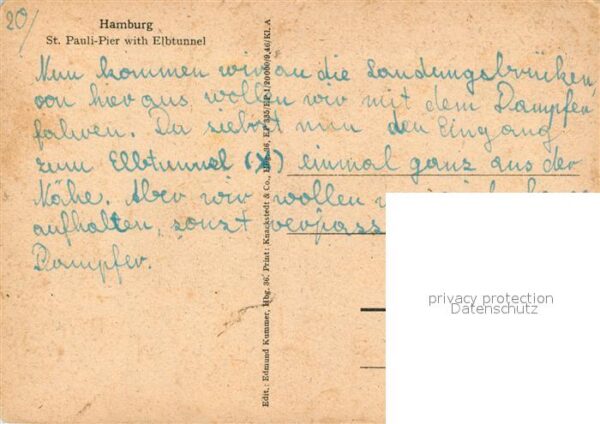 20)
Hamburg
St. Pauli-Pier with Elbtunnel
Nun kommen wir an die Landungsbrücken,
von hier aus wollen wir mit dem Dampfer
fahren. Da siehst nun den Eingang
zum Elbtunnel (X) einmal ganz aus der
Nähe. Aber wir wollen
aufhalten, sonst verpass
Dampfer.
Edit.: Edmund Kummer, Hbg. 36. Print: Knackstedt & Co., Hbg. 36, EP 335/EP 1/20000/9.46/Kl. A
privacy protection
Datenschutz